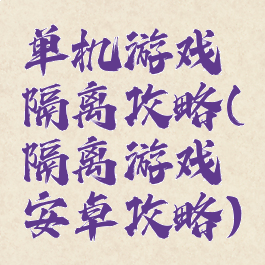 单机游戏
隔离攻略(
隔离游戏
安卓攻略)